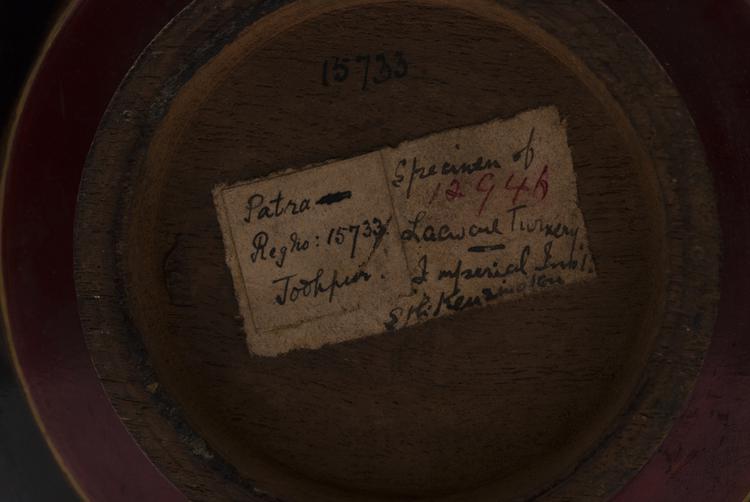 15733
Patra
Reg no: 15733
Jodhpur.
Specimen of
Lacware Turnery
Imperial Inst.
Sth. Kensington